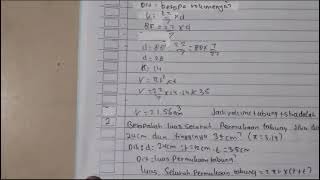 Dit = berapa volumenya?
K = 22/7 × d
88 = 22/7 × d
d = 88 : 22/7 = 88 × 7/22
d = 28
R = 14
V = πr² × t
V = 22/7 × 14 × 14 × 35
V = 21.560 cm³ Jadi volume tabung tsb adalah
2. Berapakah luas seluruh Permukaan tabung Jika
24cm dan tingginya 35cm? (π = 3,14)
Dik: d: 24cm r = 12cm t = 35cm
Dit = luas permukaan tabung?
luas seluruh permukaan tabung = 2πr × (r+t)